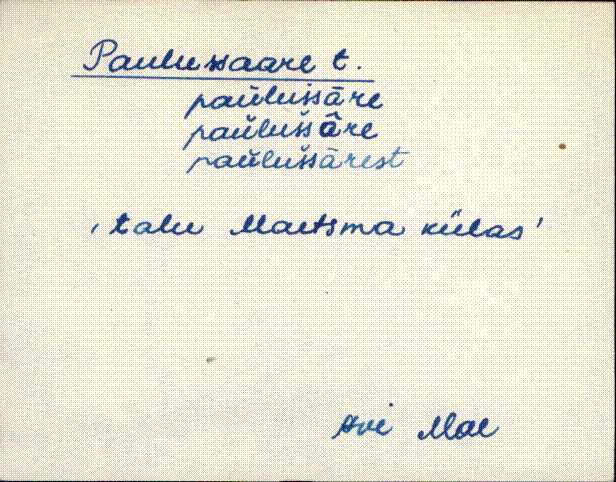 Paulussaare t.
paŭlus̆s̆āre
paŭlus̆s̆âre
paŭlus̆s̆ārest
'talu Maetsma külas'
Avi Mae